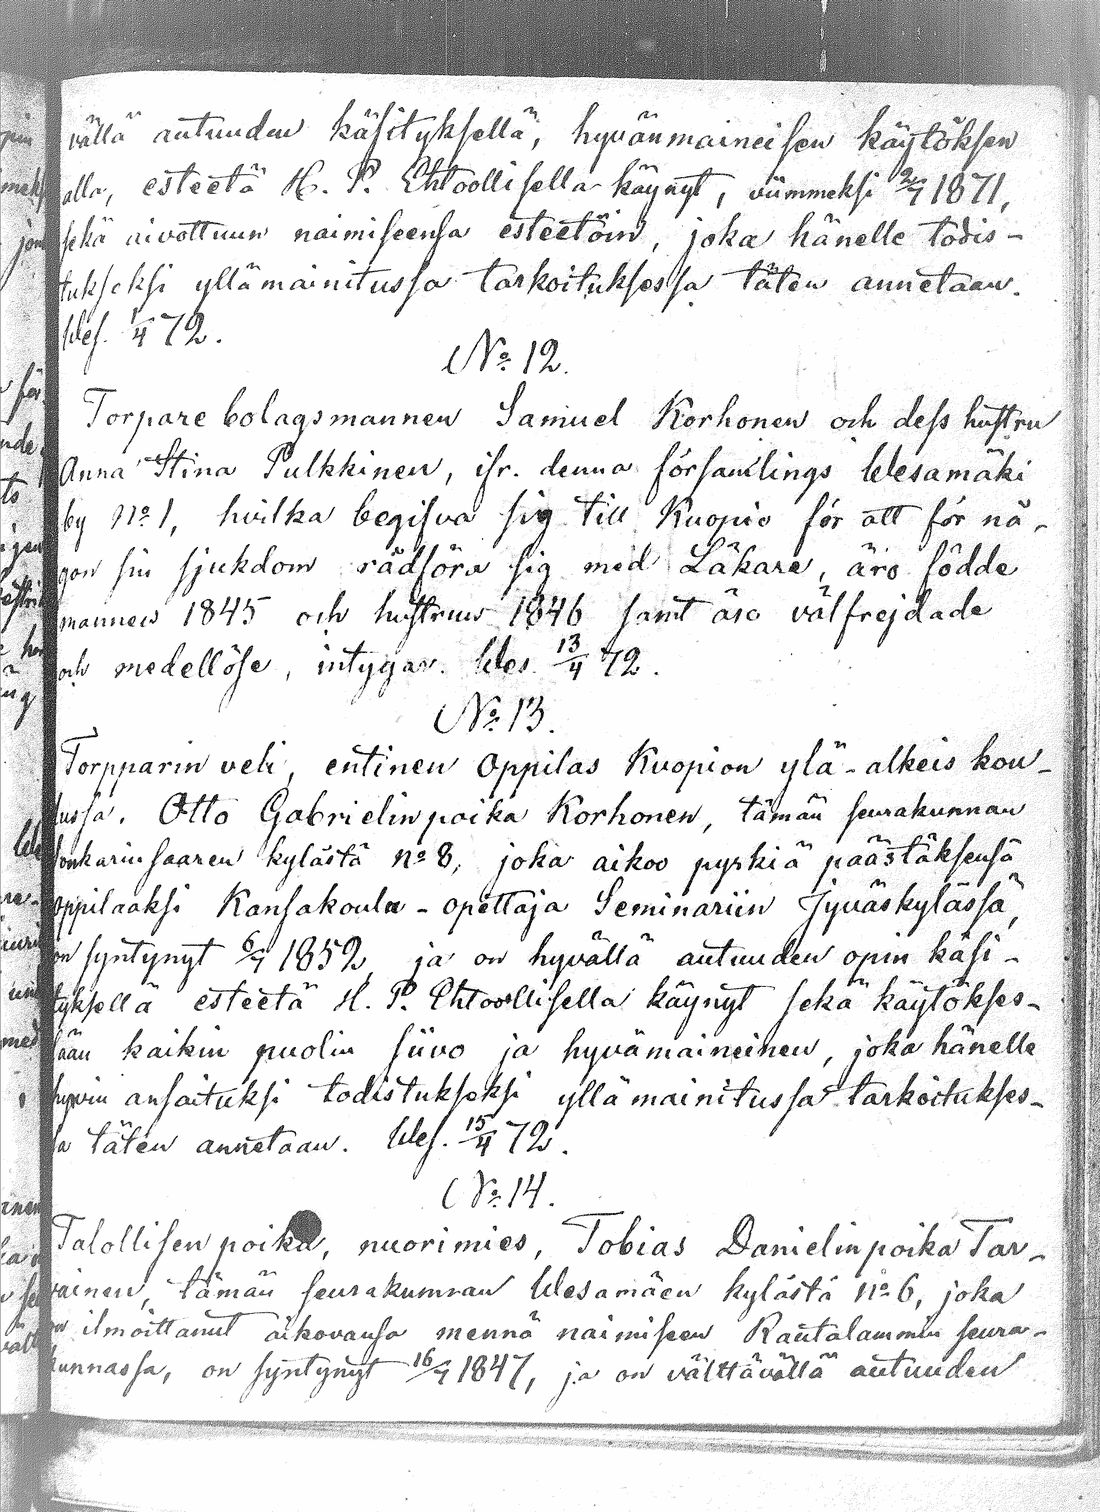 vällä autuuden käsityksellä, hyvänmaineisen käytöksen
alla, esteetä H. P. Ehtoollisella käynyt, viimmeksi 1871,
sekä aivottuun naimiseensa esteetöin, joka hänelle todis-
tukseksi yllämainitussa tarkoituksessa täten annetaan.
Wes. 1/4 72.
No 12.
Torpare bolagsmannen Samuel Korhonen och dess hustru
Anna Stina Pulkkinen, ifr. denna församlings Wesamäki
by No 1, hvilka begifva sig till Kuopio för att för nå-
gon sin sjukdom rådföra sig med Läkare, äro födde
mannen 1845 och hustrun 1846 samt äro välfrejdade
och medellöse, intygar. Wes. 13/4 72.
No 13.
Torpparin veli, entinen oppilas Kuopion ylä-alkeis kou-
lussa. Otto Gabrielinpoika Korhonen, tämän seurakunnan
Sonkarinsaaren kylästä No 8, joka aikoo pyrkiä päästäksensä
oppilaaksi Kansakoulu-opettaja Seminariin Jyväskylässä,
on syntynyt 6/7 1852, ja on hyvällä autuuden opin käsi-
tyksellä esteetä H. P. Ehtoollisella käynyt sekä käytökses-
sään kaikin puolin siivo ja hyvämaineinen, joka hänelle
hyvin ansaituksi todistukseksi yllämainitussa tarkoitukses-
sa täten annetaan. Wes. 15/4 72.
No 14.
Talollisen poika, nuorimies, Tobias Danielinpoika Tar-
vainen, tämän seurakunnan Wesamäen kylästä No 6, joka
on ilmoittanut aikovansa mennä naimiseen Rautalammin seura-
kunnassa, on syntynyt 16/7 1847, ja on välttävällä autuuden